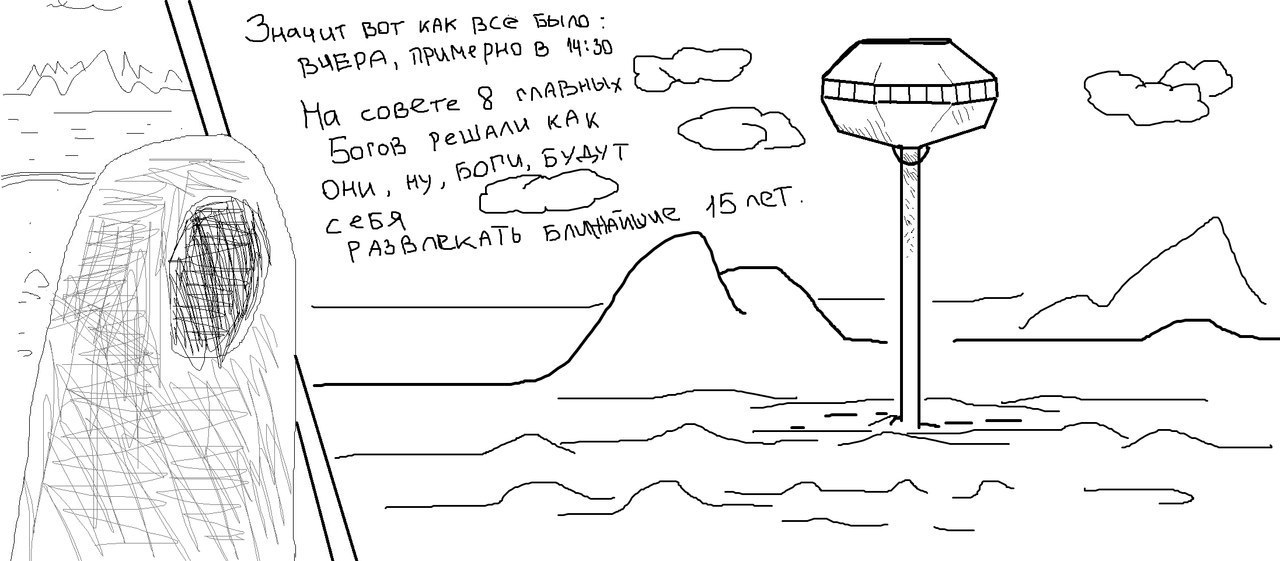 Значит вот как всё было:
вчера, примерно в 14:30
На совете 8 главных
Богов решали как
они, ну, боги, будут
себя
развлекать ближайшие 15 лет.